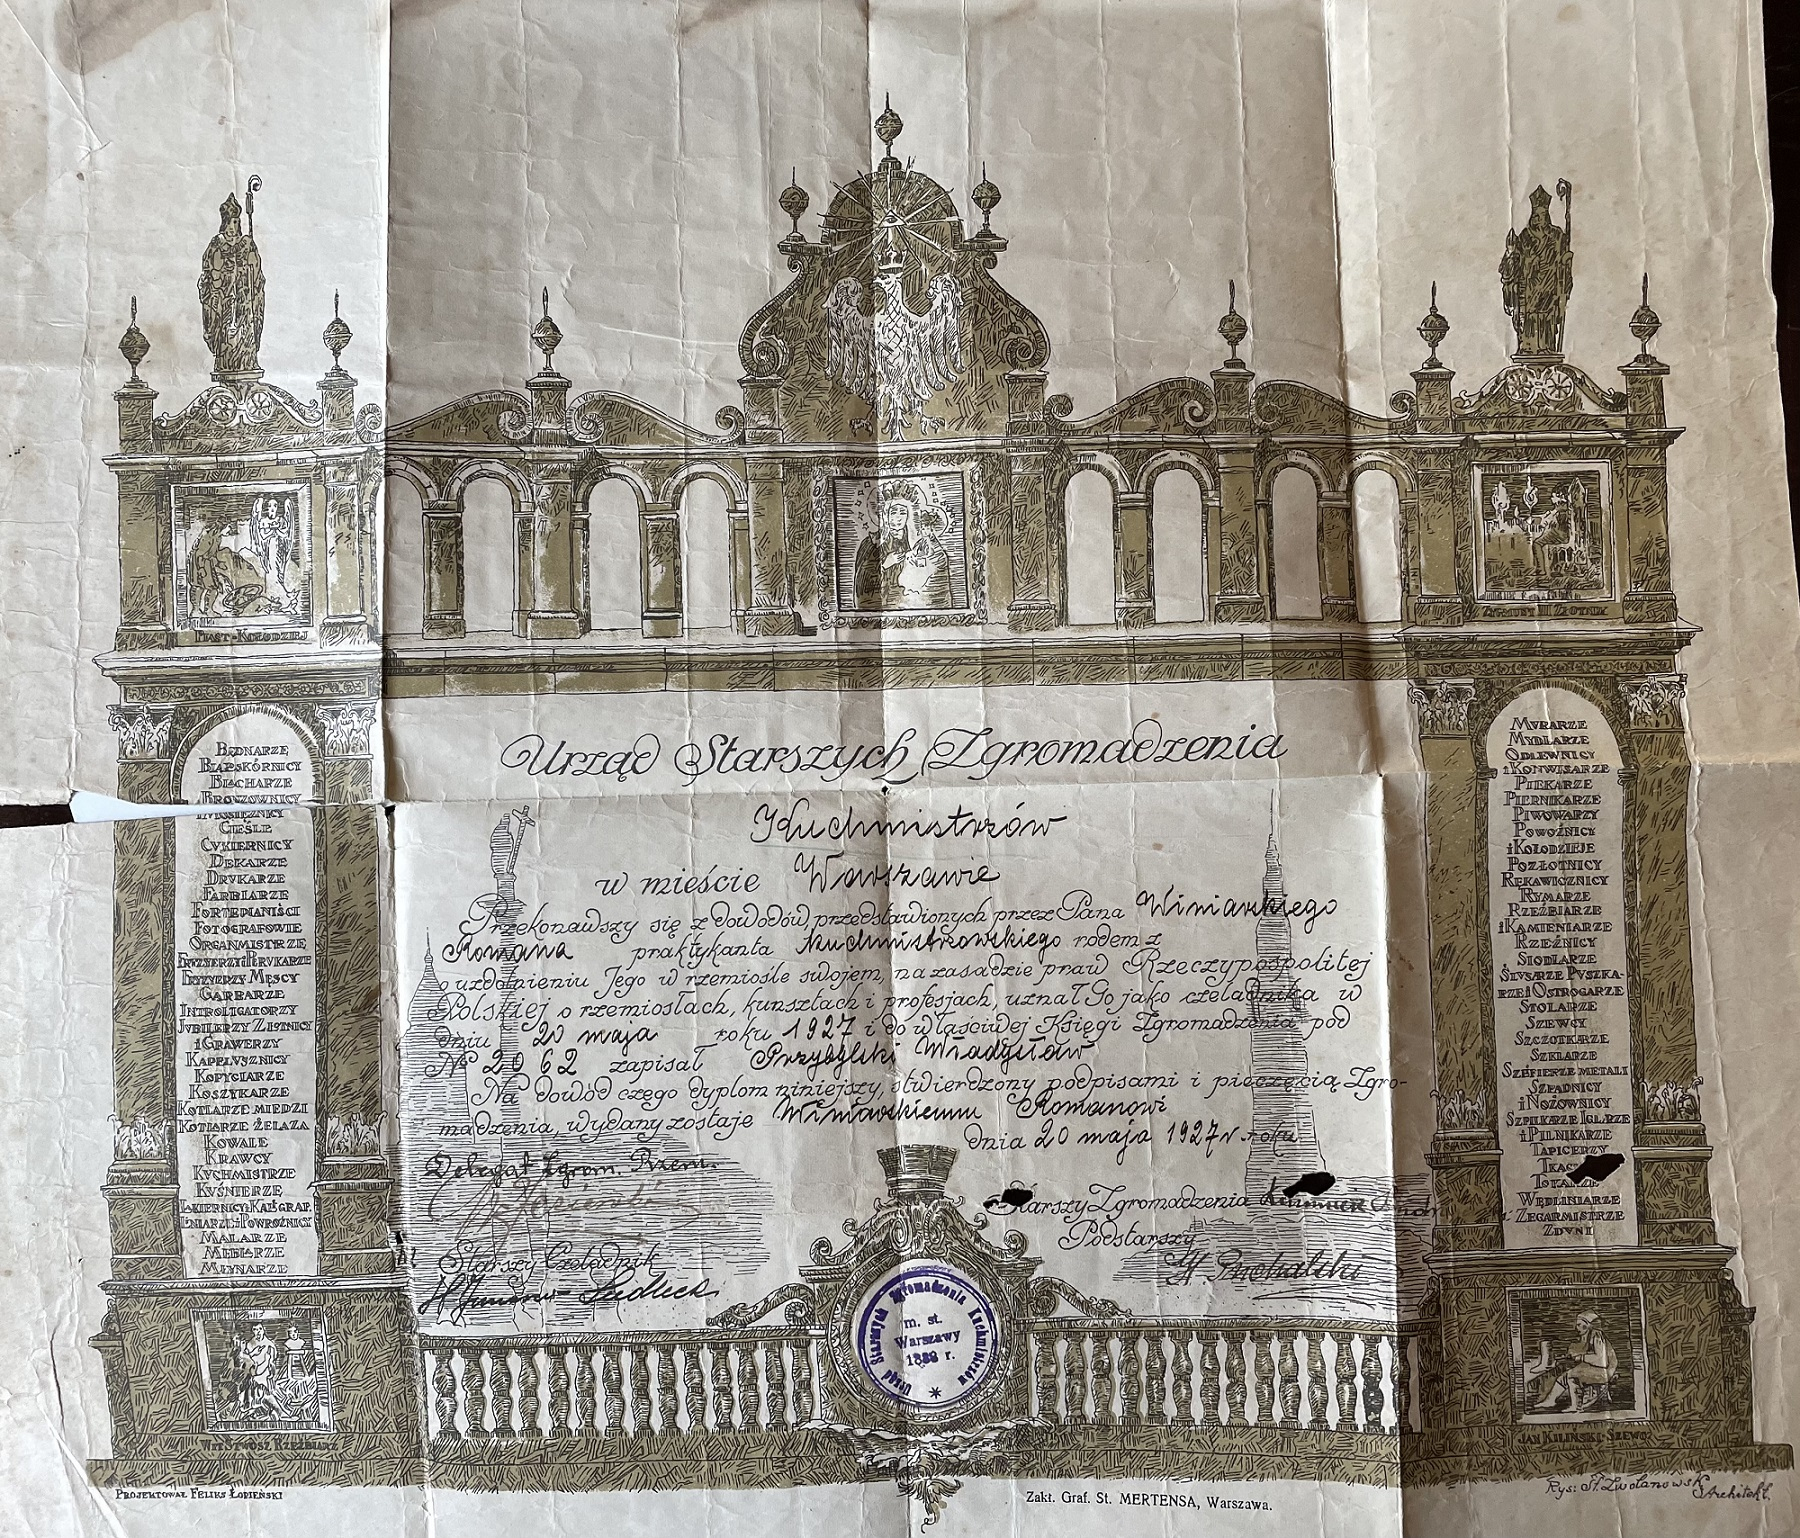 PIAST-KOŁODZIEJ
ZYGMUNT III ZŁOTNIK
Urząd Starszych Zgromadzenia
Kuchmistrzów
w mieście Warszawie
Przekonawszy się z dowodów, przedstawionych przez Pana Winiarkiego
Romana praktykanta kuchmistrzowskiego rodem z
o uzdolnieniu Jego w rzemiośle swojem, na zasadzie praw Rzeczypospolitej
Polskiej o rzemiosłach, kunsztach i profesjach, uznał Go jako czeladnika w
dniu 20 maja roku 1927 i do właściwej Księgi Zgromadzenia pod
№ 2062 zapisał Przybylski Władysław
Na dowód czego dyplom niniejszy, stwierdzony podpisami i pieczęcią Zgro-
madzenia, wydany zostaje Winiarskiemu Romanowi
dnia 20 maja 1927 r. roku
Delegat Zgrom. Rzem.
Starszy Zgromadzenia
Podstarszy
Starszy Czeladnik
BĘDNARZE
BIAŁOSKÓRNICY
BLACHARZE
BRONZOWNICY
CIEŚLE
CUKIERNICY
DEKARZE
DRUKARZE
FARBIARZE
FORTEPIANIŚCI
FOTOGRAFOWIE
ORGANMISTRZE
FRYZJERZY i PERUKARZE
FRYZJERZY MĘSCY
GARBARZE
INTROLIGATORZY
JUBILERZY ZŁOTNICY
i GRAWERZY
KAPELUSZNICY
KOPYCIARZE
KOSZYKARZE
KOTLARZE MIEDZI
KOTLARZE ŻELAZA
KOWALE
KRAWCY
KUCHMISTRZE
KUŚNIERZE
LAKIERNICY i KALIGRAF.
LNIARZE i POWROŹNICY
MALARZE
MEBLARZE
MŁYNARZE
MURARZE
MYDLARZE
ODLEWNICY
i KONWISARZE
PIEKARZE
PIERNIKARZE
PIWOWARZY
POWOŹNICY
i KOŁODZIEJE
POZŁOTNICY
RĘKAWICZNICY
RYMARZE
RZEŹBIARZE
i KAMIENIARZE
RZEŹNICY
SIODLARZE
ŚLUSARZE PUSZKA-
RZE i OSTROGARZE
STOLARZE
SZEWCY
SZCZOTKARZE
SZKLARZE
SZLIFIERZE METALI
SZPADNICY
i NOŻOWNICY
SZPILKARZE IGLARZE
i PILNIKARZE
TAPICERZY
TOKARZE
WĘDLINIARZE
ZEGARMISTRZE
ZDUNI
Urząd Starszych Zgromadzenia Kuchmistrzów
m. st.
Warszawy
r.
WIT STWOSZ RZEŹBIARZ
JAN KILIŃSKI-SZEWC
PROJEKTOWAŁ FELIKS ŁOPIEŃSKI
Zakł. Graf. St. MERTENSA, Warszawa.
Rys: St. Zwolanowski
Architekt.